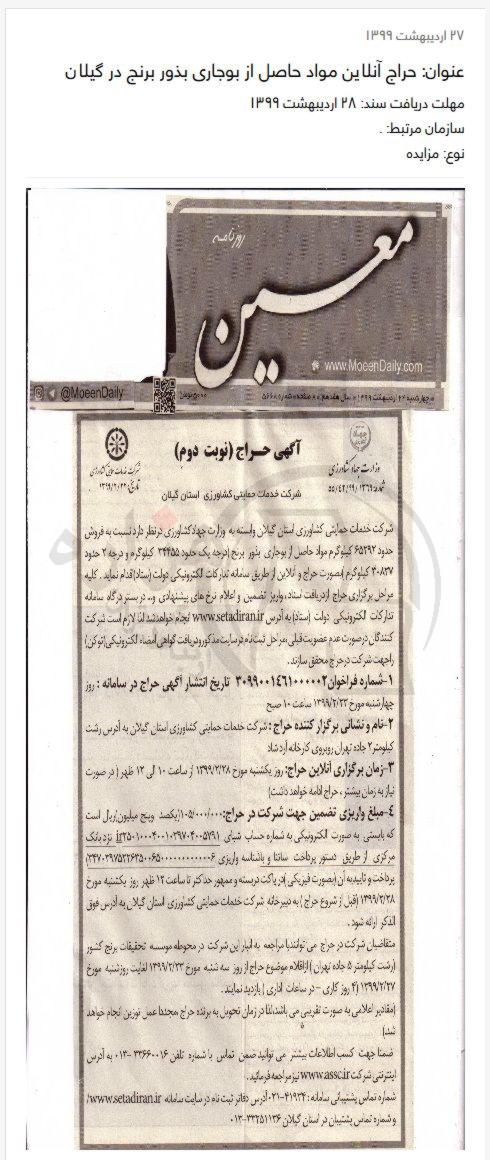 ۲۷ اردیبهشت ۱۳۹۹
عنوان: حراج آنلاین مواد حاصل از بوجاری بذور برنج در گیلان
مهلت دریافت سند: ۲۸ اردیبهشت ۱۳۹۹
سازمان مرتبط: .
نوع: مزایده
روزنامه
معین
www.MoeenDaily.com
@MoeenDaily
چهارشنبه ۲۴ اردیبهشت ۱۳۹۹ سال هفدهم ۸ صفحه شماره ۵۶۶۸
۵۰۰۰ تومان
آگهی حراج (نوبت دوم)
وزارت جهاد کشاورزی
شرکت خدمات حمایتی کشاورزی
شرکت خدمات حمایتی کشاورزی استان گیلان
شرکت خدمات حمایتی کشاورزی استان گیلان وابسته به وزارت جهاد کشاورزی در نظر دارد نسبت به فروش
حدود ۶۵۲۹۲ کیلوگرم مواد حاصل از بوجاری بذور برنج (درجه یک حدود ۳۴۴۵۵ کیلوگرم و درجه ۲ حدود
۳۰۸۳۷ کیلوگرم) بصورت حراج و آنلاین از طریق سامانه تدارکات الکترونیکی دولت (ستاد) اقدام نماید. کلیه
مراحل برگزاری حراج از دریافت اسناد، واریز تضمین و اعلام نرخ های پیشنهادی و.. در بستر درگاه سامانه
تدارکات الکترونیکی دولت (ستاد) به آدرس www.setadiran.ir انجام خواهد شد لذا لازم است شرکت
کنندگان در صورت عدم عضویت قبلی، مراحل ثبت نام در سایت مذکور و دریافت گواهی امضاء الکترونیکی (توکن)
را جهت شرکت در حرج محقق سازند.
۱-شماره فراخوان ۳۰۹۹۰۰۱۴۶۱۰۰۰۰۰۲ تاریخ انتشار آگهی حراج در سامانه : روز
چهارشنبه مورخ ۱۳۹۹/۲/۲۳ ساعت ۱۰ صبح
۲-نام و نشانی برگزار کننده حراج : شرکت خدمات حمایتی کشاورزی استان گیلان به آدرس رشت
کیلومتر ۲ جاده تهران روبروی کارخانه آرد شاد
۳-زمان برگزاری آنلاین حراج: روز یکشنبه مورخ ۱۳۹۹/۲/۲۸ از ساعت ۱۰ الی ۱۲ ظهر (در صورت
نیاز به زمان بیشتر، حراج ادامه خواهد داشت)
۴-مبلغ واریزی تضمین جهت شرکت در حراج: ۱۰۵/۰۰۰/۰۰۰ (یکصد و پنج میلیون) ریال است
که بایستی به صورت الکترونیکی به شماره حساب شبای نزد بانک
مرکزی از طریق دستور پرداخت ساتنا و باشناسه واریزی
پرداخت و تاییدیه آن (بصورت فیزیکی) در پاکت دربسته و ممهور حداکثر تا ساعت ۱۲ ظهر روز یکشنبه مورخ
۱۳۹۹/۲/۲۸ (قبل از شروع حراج) به دبیرخانه شرکت خدمات حمایتی کشاورزی استان گیلان به آدرس فوق
الذکر ارائه شود.
متقاضیان شرکت در حراج می توانند با مراجعه به انبار این شرکت در محوطه موسسه تحقیقات برنج کشور
(رشت کیلومتر ۵ جاده تهران) از اقلام موضوع حراج از روز سه شنبه مورخ ۱۳۹۹/۲/۲۳ لغایت روز شنبه مورخ
۱۳۹۹/۲/۲۷ (۴ روز کاری - در ساعات اداری) بازدید نمایند.
(مقادیر اعلامی به صورت تقریبی می باشد، لذا در زمان تحویل به برنده حراج، مجددا عمل توزین انجام خواهد
شد)
ضمنا جهت کسب اطلاعات بیشتر می توانید ضمن تماس با شماره تلفن ۳۳۶۶۰۰۱۶-۰۱۳ به آدرس
اینترنتی شرکت www.assc.ir نیز مراجعه فرمائید.
شماره تماس پشتیبانی سامانه: ۴۱۹۳۴-۰۲۱ آدرس دفاتر ثبت نام در سایت سامانه www.setadiran.ir/
و شماره تماس پشتیبان در استان گیلان ۳۳۲۵۱۱۳۶-۰۱۳